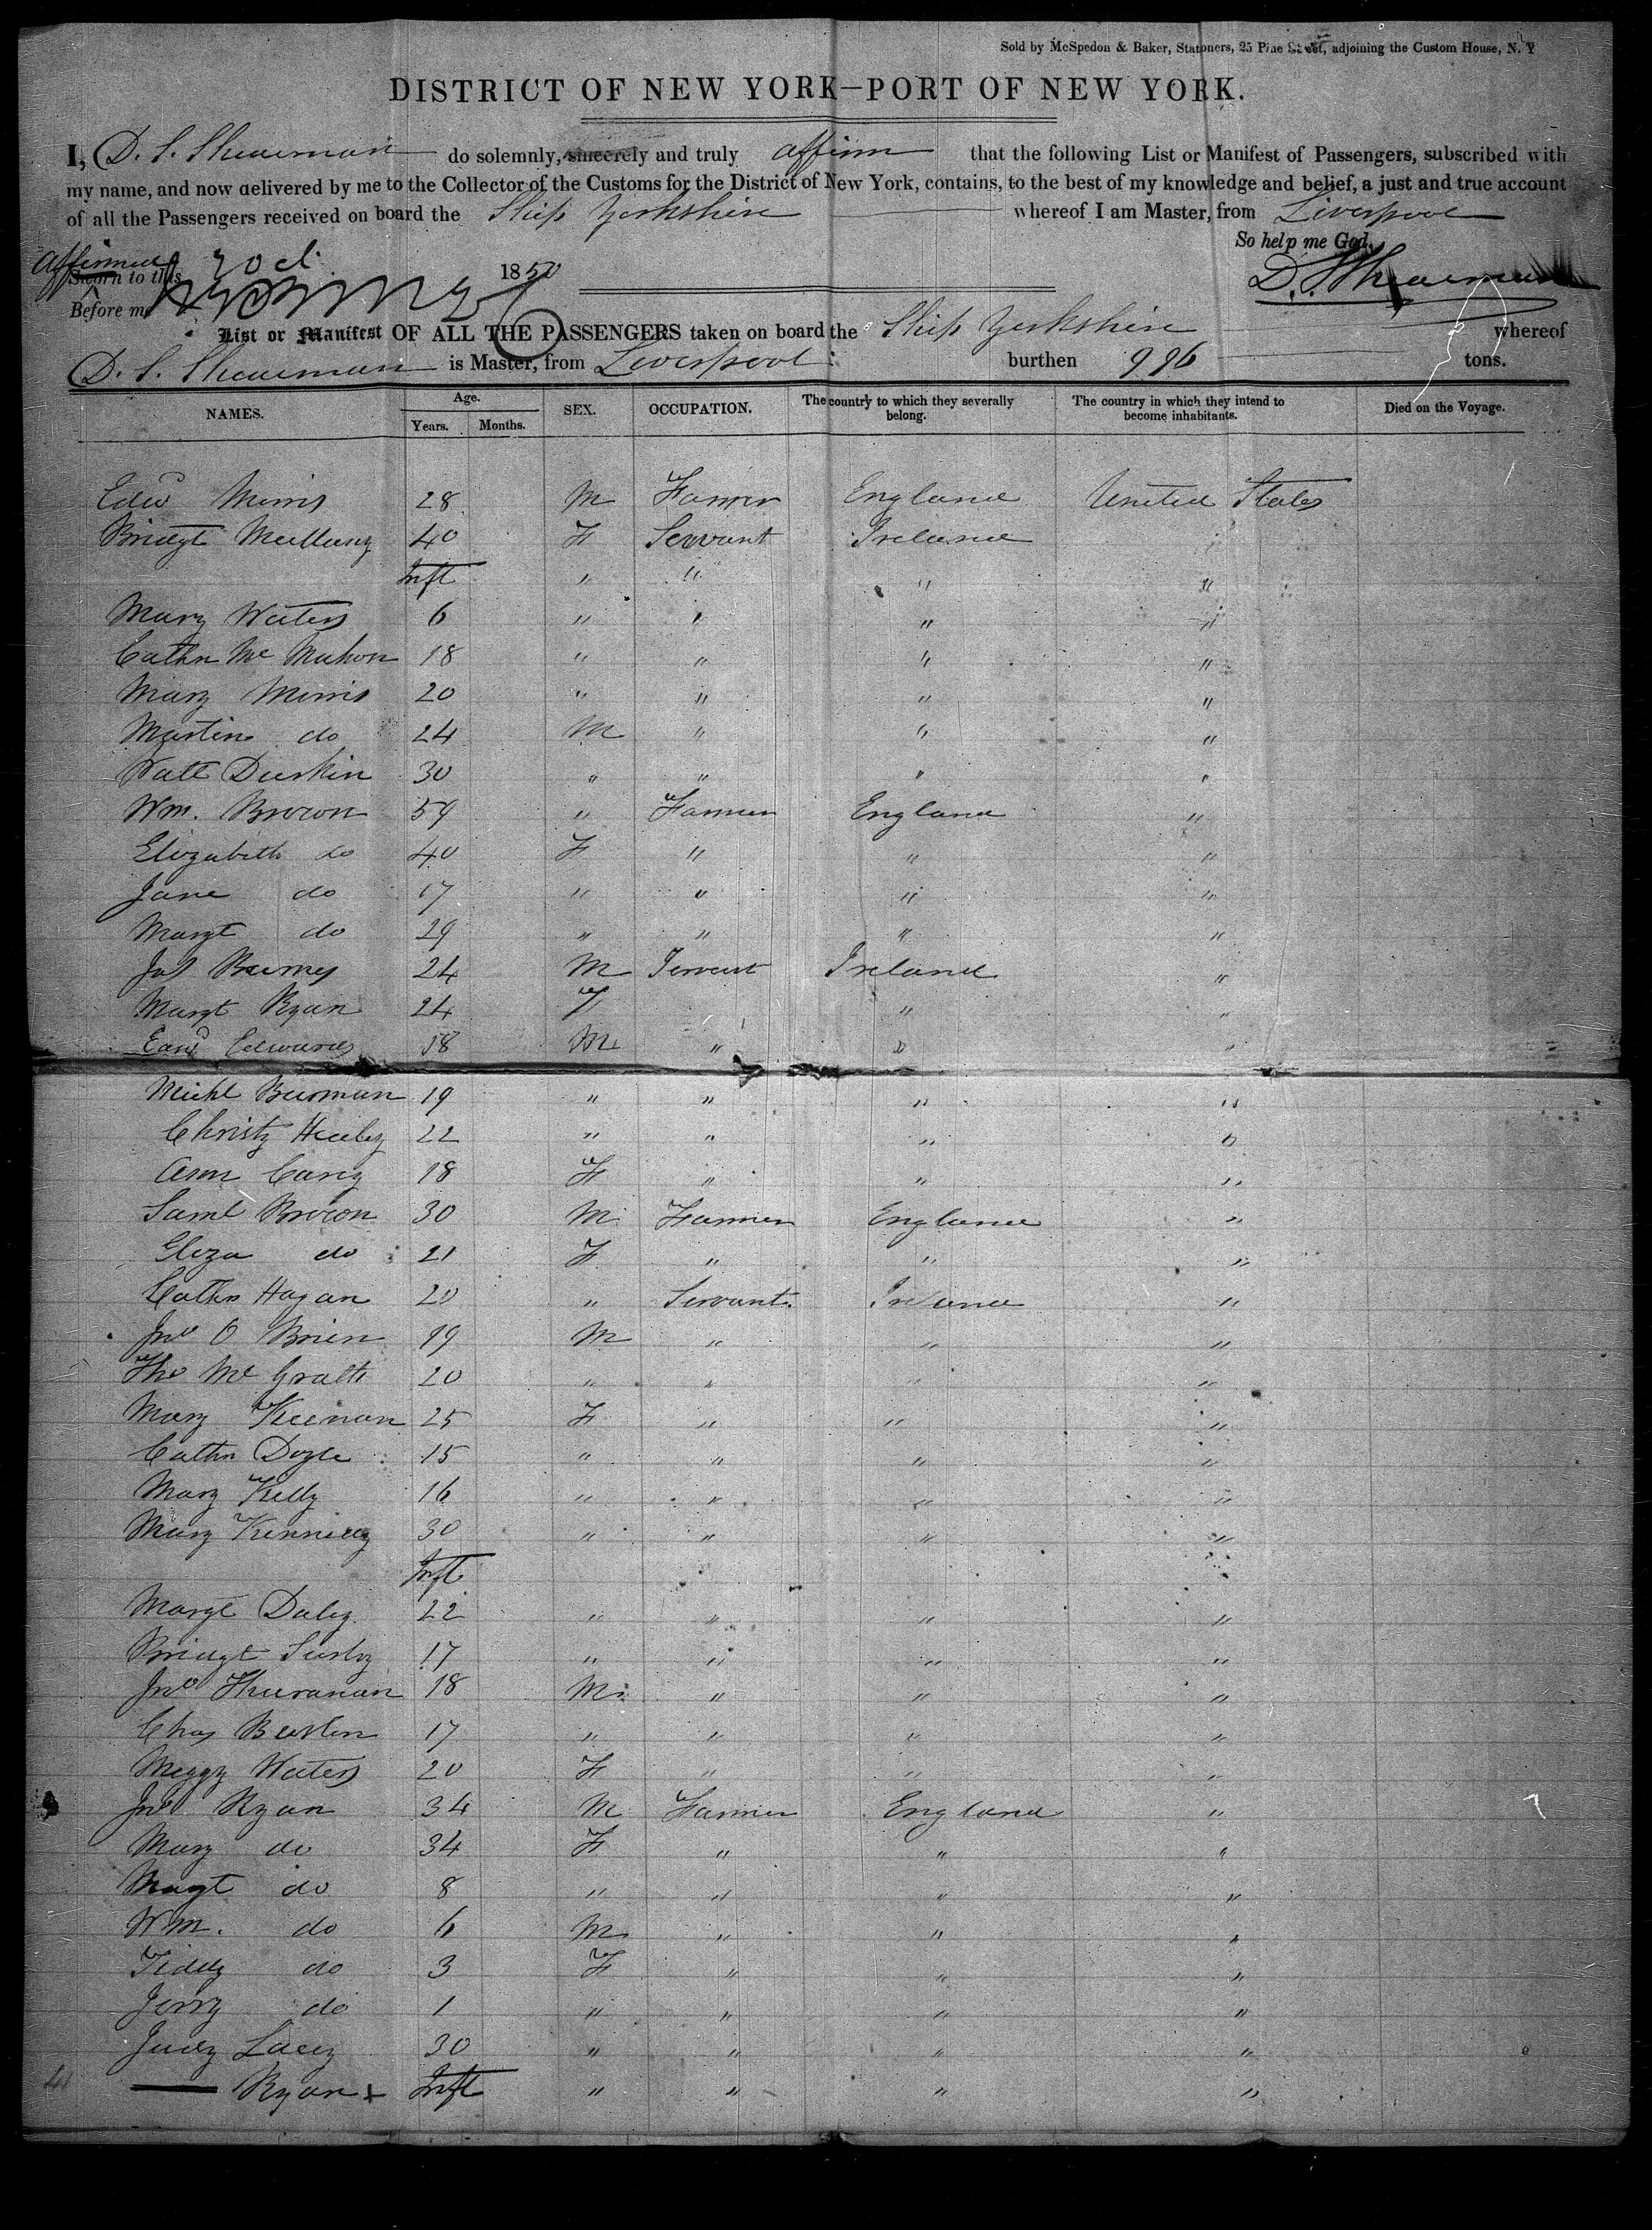 Sold by McSpedon & Baker, Stationers, 25 Pine Street, adjoining the Custom House, N. Y
DISTRICT OF NEW YORK—PORT OF NEW YORK.
I, D. S. Shearman do solemnly, sincerely and truly affirm that the following List or Manifest of Passengers, subscribed with
my name, and now delivered by me to the Collector of the Customs for the District of New York, contains, to the best of my knowledge and belief, a just and true account
of all the Passengers received on board the Ship Yorkshire whereof I am Master, from Liverpool
So help me God.
affirmed
Sworn to this 1850 D. S. Shearman
Before me
List or Manifest OF ALL THE PASSENGERS taken on board the Ship Yorkshire whereof
D. S. Shearman is Master, from Liverpool burthen 996 tons.
NAMES. Age. Years. Months. SEX. OCCUPATION. The country to which they severally belong. The country in which they intend to become inhabitants. Died on the Voyage.
Edwd Morris 28 M Farmer England United States
Bridgt 40 F Servant Ireland "
Inft " " " "
Mary Waters 6 " " " "
Cathn McMahon 18 " " " "
Mary Morris 20 " " " "
Martin do 24 M " " "
Durkin 30 " " " "
Wm. Brown 59 " Farmer England "
Elizabeth do 40 F " " "
Jane do 17 " " " "
Margt do 29 " " " "
Jas 24 M Servant Ireland "
Margt Ryan 24 F " "
Edwd Edwards 18 M " " "
Michl 19 " " " "
Christy Healey 22 " " " "
Ann Carey 18 F " " "
Saml Brown 30 M Farmer England "
Eliza do 21 F " " "
Cathn Hagan 20 " Servant Ireland "
Jno O Brien 19 M " " "
Tho McGrath 20 " " " "
Mary Keenan 25 F " " "
Cathn Doyle 15 " " " "
Mary Kelly 16 " " " "
Mary Kennedy 30 " " " "
Inft
Margt Daley 22 " " " "
Bridgt 17 " " " "
Jno 18 M " " "
Chas 17 " " " "
Meggy Waters 20 F " " "
Jno Ryan 34 M Farmer England "
Mary do 34 F " " "
Margt do 8 " " " "
Wm. do 6 M " " "
do 3 F " " "
Jerry do 1 " " " "
Judy Lacey 30 " " " "
Ryan + Inft " " " "
41